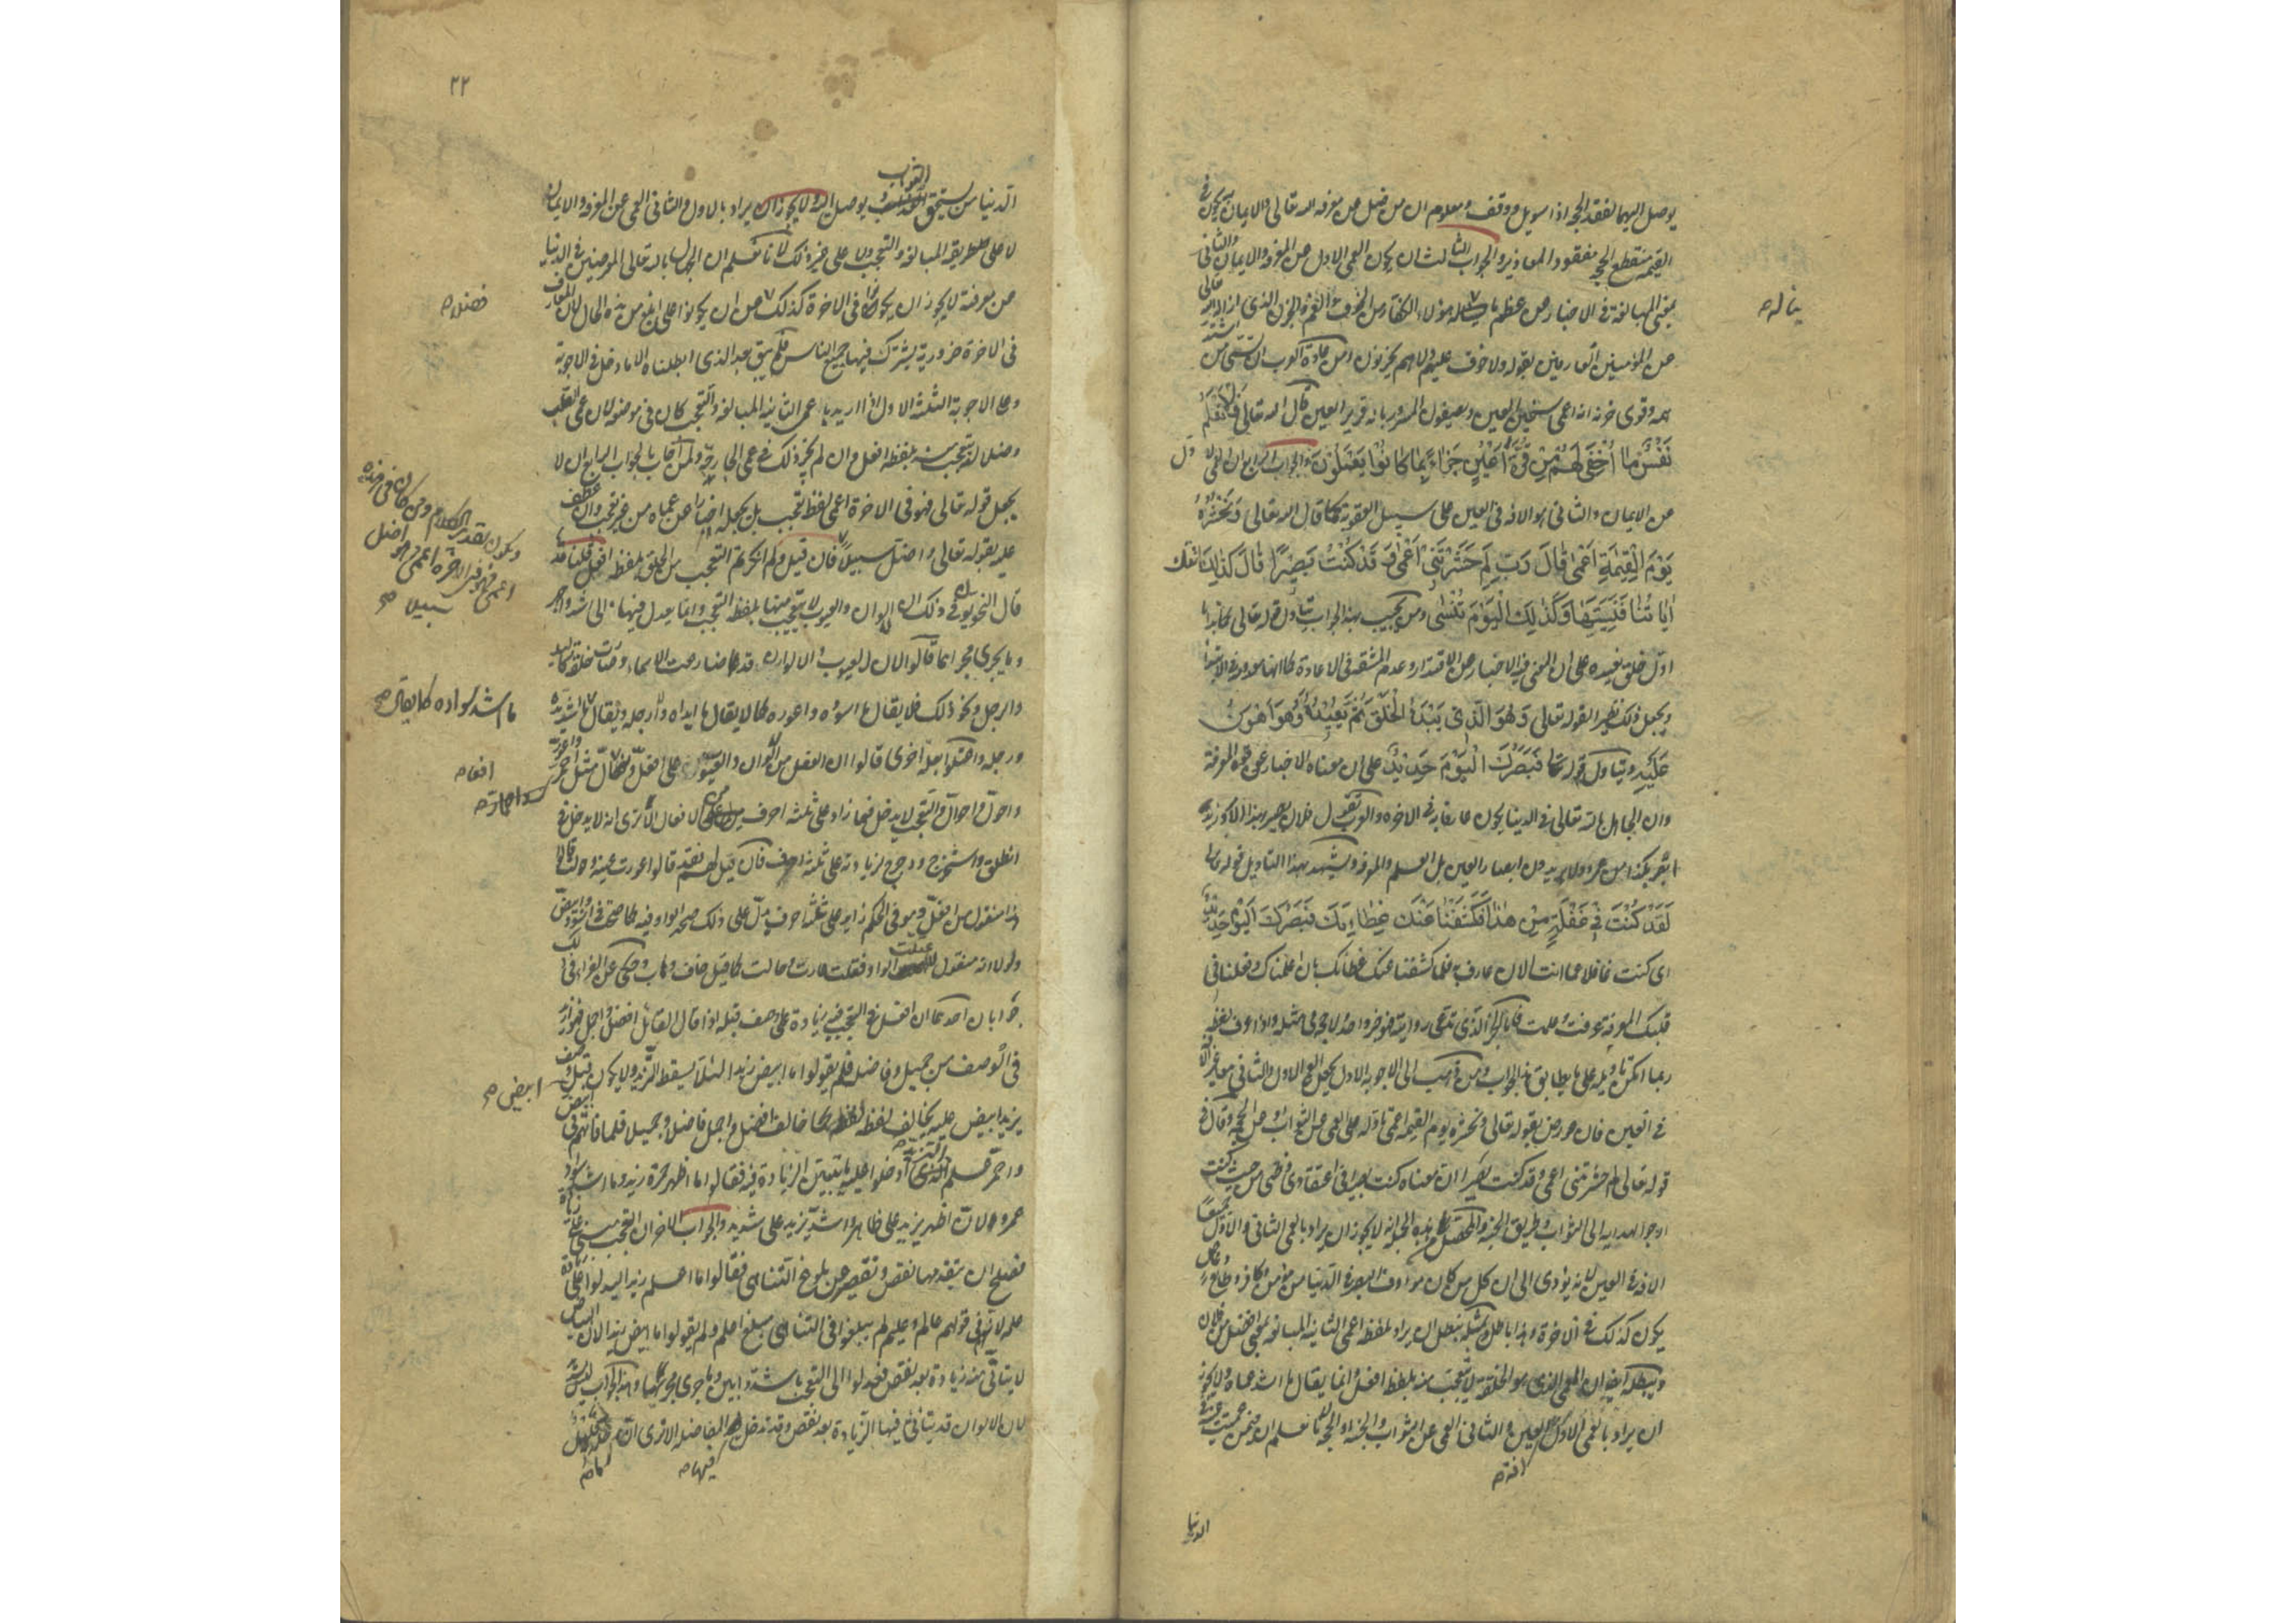 يوصل اليهما لفقد الحجة اذا سويل ووقف ومعلوم ان من ضل عن معرفة الله تعالى والايمان يكون في
القيمة منقطع الحجة مفقود المعاذير والجواب الثالث ان يكون العمى الاول عن المعرفة والايمان والثاني
بمعنى المبالغة في الاخبار عن عظم ما يناله هؤلاء الكفار من الخوف والغم والحزن الذي ازاله الله تعالى
عن المؤمنين العارفين بقوله ولا خوف عليهم ولا هم يحزنون ومن عادة العرب ان تسمى من اشتد
همه وقوى حزنه انه اعمى سخين العين ويصفون المسرور بانه قرير العين قال الله تعالى فَلا تَعْلَمُ
نَفْسٌ ما أُخْفِيَ لَهُمْ مِنْ قُرَّةِ أَعْيُنٍ جَزاءً بِما كانُوا يَعْمَلُونَ والجواب الرابع ان العمى الاول
عن الايمان والثاني هو الافة في العين على سبيل العقوبة كما قال الله تعالى وَنَحْشُرُهُ
يَوْمَ الْقِيٰمَةِ أَعْمٰى قالَ رَبِّ لِمَ حَشَرْتَنِي أَعْمٰى وَقَدْ كُنْتُ بَصِيرًا قالَ كَذٰلِكَ أَتَتْكَ
اٰياتُنا فَنَسِيتَها وَكَذٰلِكَ الْيَوْمَ تُنْسٰى ومن يجيب بهذا الجواب يتاول قوله تعالى كما بدانا
اول خلق نعيده على ان المعنى فيه الاخبار عن الاقتدار وعدم المشقة في الاعادة كما انها معدومة في الابتداء
ويجعل ذلك نظيرا لقوله تعالى وَهُوَ الَّذِي يَبْدَأُ الْخَلْقَ ثُمَّ يُعِيدُهُ وَهُوَ أَهْوَنُ
عَلَيْهِ ويتاول قوله تعالى فَبَصَرُكَ الْيَوْمَ حَدِيدٌ على ان معناه الاخبار عن قوة المعرفة
وان الجاهل بالله تعالى في الدنيا يكون عارفا به في الاخرة والعرب تقول فلان بصير بهذا الامر وزيد
ابصر بكذا من عمرو ولا يريدون ابصار العين بل العلم والمعرفة ويشهد بهذا التاويل قوله تعالى
لَقَدْ كُنْتَ فِي غَفْلَةٍ مِنْ هٰذا فَكَشَفْنا عَنْكَ غِطاءَكَ فَبَصَرُكَ الْيَوْمَ حَدِيدٌ
اي كنت غافلا عما انت الان عارف به فلما كشفنا عنك غطائك بان اعلمناك وفعلنا في
قلبك المعرفة عرفت وعلمت فاما الخبر الذي تدعى روايته فهو خبر واحد لا حجة في مثله واذا عرف لفظه
ربما امكن تاويله على ما يطابق هذا الجواب ومن ذهب الى الاجوبة الاول يجعل العمى الاول والثاني معا غير الافة
في العين فان عورض بقوله تعالى ونحشره يوم القيمة اعمى تاوله على العمى عن الثواب او عن الحجة وقال في
قوله تعالى لم حشرتني اعمى وقد كنت بصيرا ان معناه كنت بصيرا في اعتقادي وظني من حيث كنت
ارجو الهداية الى الثواب وطريق الجنة والمتحصل من هذه الجملة انه لا يجوز ان يراد بالعمى الثاني والاول جميعا
الافة في العين لانه يؤدي الى ان كل من كان مؤوف البصر في الدنيا من مؤمن وكافر وطائع وعاص
يكون كذلك في الاخرة وهذا باطل وبمثله يبطل ان يراد بلفظ اعمى الثانية المبالغة بمعنى افضل من فلان
ويبطله ايضا ان العمى الذي هو الخلقة لا يتعجب منه بلفظ افعل وانما يقال ما اشد عماه ولا يجوز
ان يراد بالعمى الاول العين والثاني العمى عن الثواب والجنة او الحجة لانا نعلم ان فيمن عميت عينه في
يناله صح
افة صح
الدنيا
٢٢
الدنيا من يستحق الثواب ويوصل اليه ولا يجوز ان يراد بالاول والثاني العمى عن المعرفة والايمان
لا على طريقة المبالغة والتعجب ولا على غير ذلك لانا نعلم ان الجهال بالله تعالى المعرضين في الدنيا
عن معرفته لا يجوز ان يكونوا في الاخرة كذلك فضلا عن ان يكونوا على ابلغ من هذه الحال لان المعارف
في الاخرة ضرورية يشترك فيها جميع الناس فلم يبق بعد الذي ابطلناه الا ما دخل في الاجوبة
وعلى الاجوبة الثلثة الاول اذا اريد باعمى الثانية المبالغة والتعجب كان في موضعه لان عمى القلب
وضلاله يتعجب منه بلفظ افعل وان لم يجز ذلك في عمى الجارحة ولمن اجاب بالجواب الرابع ان لا
يجعل قوله تعالى فهو في الاخرة اعمى لفظ تعجب بل يجعله اخبارا عن عماه من غير تعجب وان عطف
عليه بقوله تعالى واضل سبيلا فان قيل ولم انكرتم التعجب من الخلق بلفظ افعل قلنا قد
قال النحويون في ذلك ان الالوان والعيوب لا يتعجب منها بلفظ التعجب وانما يعدل فيها الى اشد واظهر
وما يجري مجراهما قالوا لان العيوب والالوان قد ضارعت الاسماء وصارت خلقة كاليد
والرجل ونحو ذلك فلا يقال ما اسوده واعوره كما لا يقال ما ايداه وارجله ويقال ما اشد يده
ورجله واعتلوا بعلة اخرى قالوا ان الفعل من الالوان والعيوب على افعل وافعال مثل احمر واعور
واحول واحوال والتعجب لا يدخل فيما زاد على ثلثة احرف من الافعال الا ترى انه لا يدخل في
انطلق واستخرج ودحرج لزيادته على ثلثة احرف فان قيل لهم فقد قالوا عورت عينه وحولت قالوا
هذا منقول من افعل وهو في الحكم زايد على ثلثة احرف يدل على ذلك صحة الواو فيه كما صحت في اسود وابيض
ولولا انه منقول لاعتلت الواو فقلت عارت وحالت كما قيل خاف وهاب وحكى عن الفراء في ذلك
جوابان احدهما ان افعل في التعجب فيه زيادة على وصف قبله اذا قال القائل افضل واجمل فهو ازيد
في الوصف من جميل وفاضل فلم يقولوا ما ابيض زيدا لئلا يسقط التزيد ولا يكون قبل وصف
يزيد ابيض عليه يخالف لفظه لفظ ابيض كما خالف افضل واجمل فاضلا وجميلا فلما فاتهم في ابيض
واحمر علم التزيد ادخلوا عليه ما يتبين الزيادة فيه فقالوا ما اظهر حمرة زيد وما اشد سواد
عمرو لان اظهر يزيد على ظاهر واشد يزيد على شديد والجواب الاخر ان التعجب مبني على زيادة
فصلح ان يتقدمها نقص وتقصير عن بلوغ التناهي فقالوا ما اعلم زيدا ليدلوا على زيادة
علمه لانه في قولهم عالم وعليم لم يبلغوا في التناهي مبلغ اعلم ولم يقولوا ما ابيض زيدا لان البياض
لا يتاتى منه زيادة بعد نقص فعدلوا الى التعجب باشد وابين وما جرى مجراهما وهذا الجواب ليس بسديد
لان الالوان قد يتاتى فيها الزيادة بعد نقص وقد تدخل فيها المفاضلة الا ترى ان
فضلا صح
ويكون تقدير الكلام ومن كان في هذه
اعمى فهو في الاخرة اعمى وهو اضل
سبيلا صح
ما اشد سواده كما يقال صح
ابيض صح
فيها صح